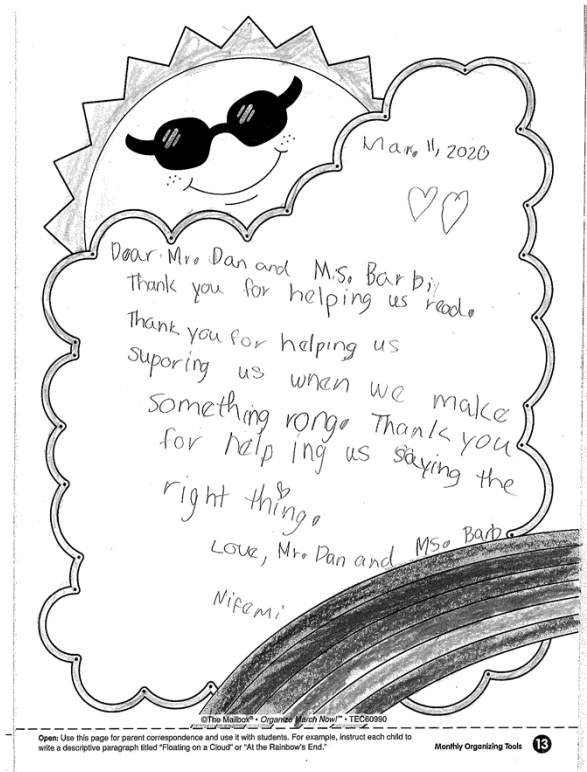 Mar. 11, 2020
Dear Mr. Dan and M.s. Barb,
Thank you for helping us read.
Thank you for helping us
suporing us when we make
something rong. Thank you
for help ing us saying the
right thing.
Love, Mr. Dan and Ms. Barb
Nifemi
©The Mailbox® • Organize March Now!™ • TEC60990
Open: Use this page for parent correspondence and use it with students. For example, instruct each child to
write a descriptive paragraph titled "Floating on a Cloud" or "At the Rainbow's End."
Monthly Organizing Tools 13